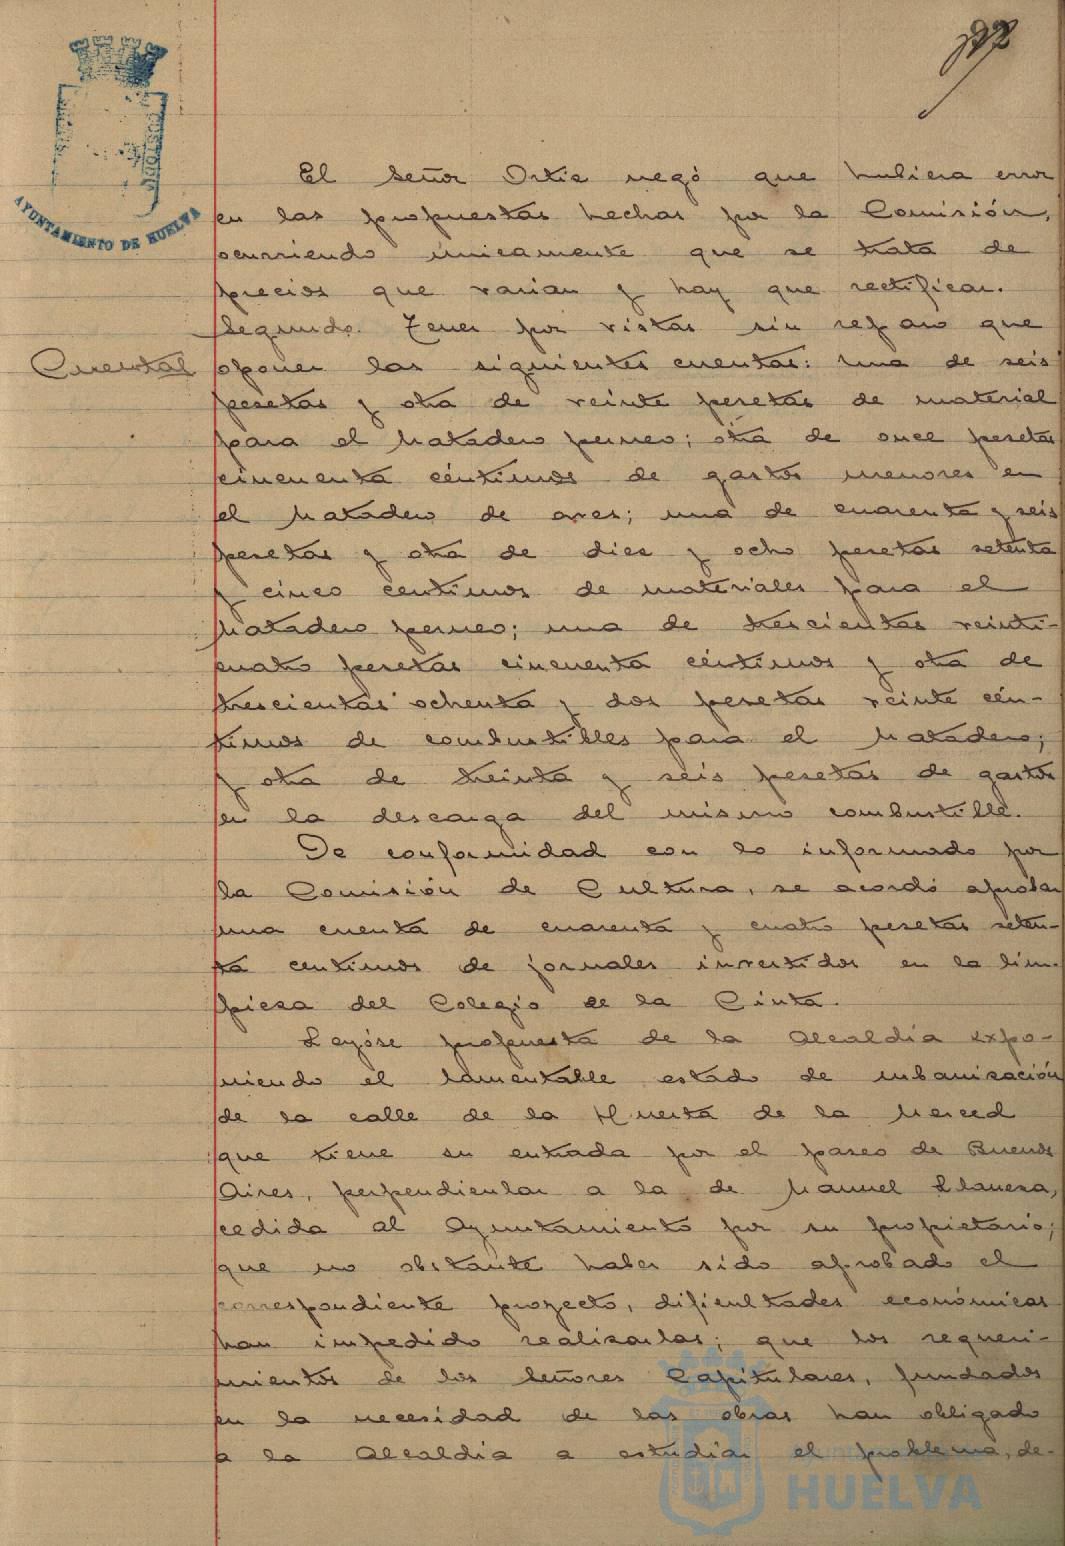 El señor Ortiz negó que hubiera error
en las propuestas hechas por la Comisión,
ocurriendo únicamente que se trata de
precios que varian y hay que rectificar.
Segundo. Tener por vistas sin reparo que
Cuentas
oponer las siguientes cuentas: una de seis
pesetas y otra de veinte pesetas de material
para el Matadero perneo; otra de once pesetas
cincuenta céntimos de gastos menores en
el Matadero de aves; una de cuarenta y seis
pesetas y otra de diez y ocho pesetas setenta
y cinco centimos de materiales para el
Matadero perneo; una de trescientas veinti-
cuatro pesetas cincuenta céntimos y otra de
trescientas ochenta y dos pesetas veinte cén-
timos de combustibles para el Matadero;
y otra de treinta y seis pesetas de gastos
en la descarga del mismo combustible.
De conformidad con lo informado por
la Comisión de Cultura, se acordó aprobar
una cuenta de cuarenta y cuatro pesetas seten-
ta centimos de jornales invertidos en la lim-
pieza del Colegio de la Cinta.
Leyóse propuesta de la Alcaldía expo-
niendo el lamentable estado de urbanización
de la calle de la Huerta de la Merced
que tiene su entrada por el paseo de Buenos
Aires, perpendicular a la de Manuel Llaneza,
cedida al Ayuntamiento por su propietario;
que no obstante haber sido aprobado el
correspondiente proyecto, dificultades económicas
han impedido realizarlas; que los requeri-
mientos de los Señores Capitulares, fundados
en la necesidad de las obras han obligado
a la Alcaldía a estudiar el problema, de-
AYUNTAMIENTO DE HUELVA
HUELVA